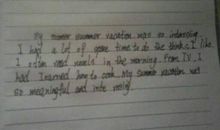 My summer vacation was so interesting.
I had a lot of spare time to do the things I like.
I often read novels in the morning. From TV, I
had learned how to cook. My summer vacation was
so meaningful and